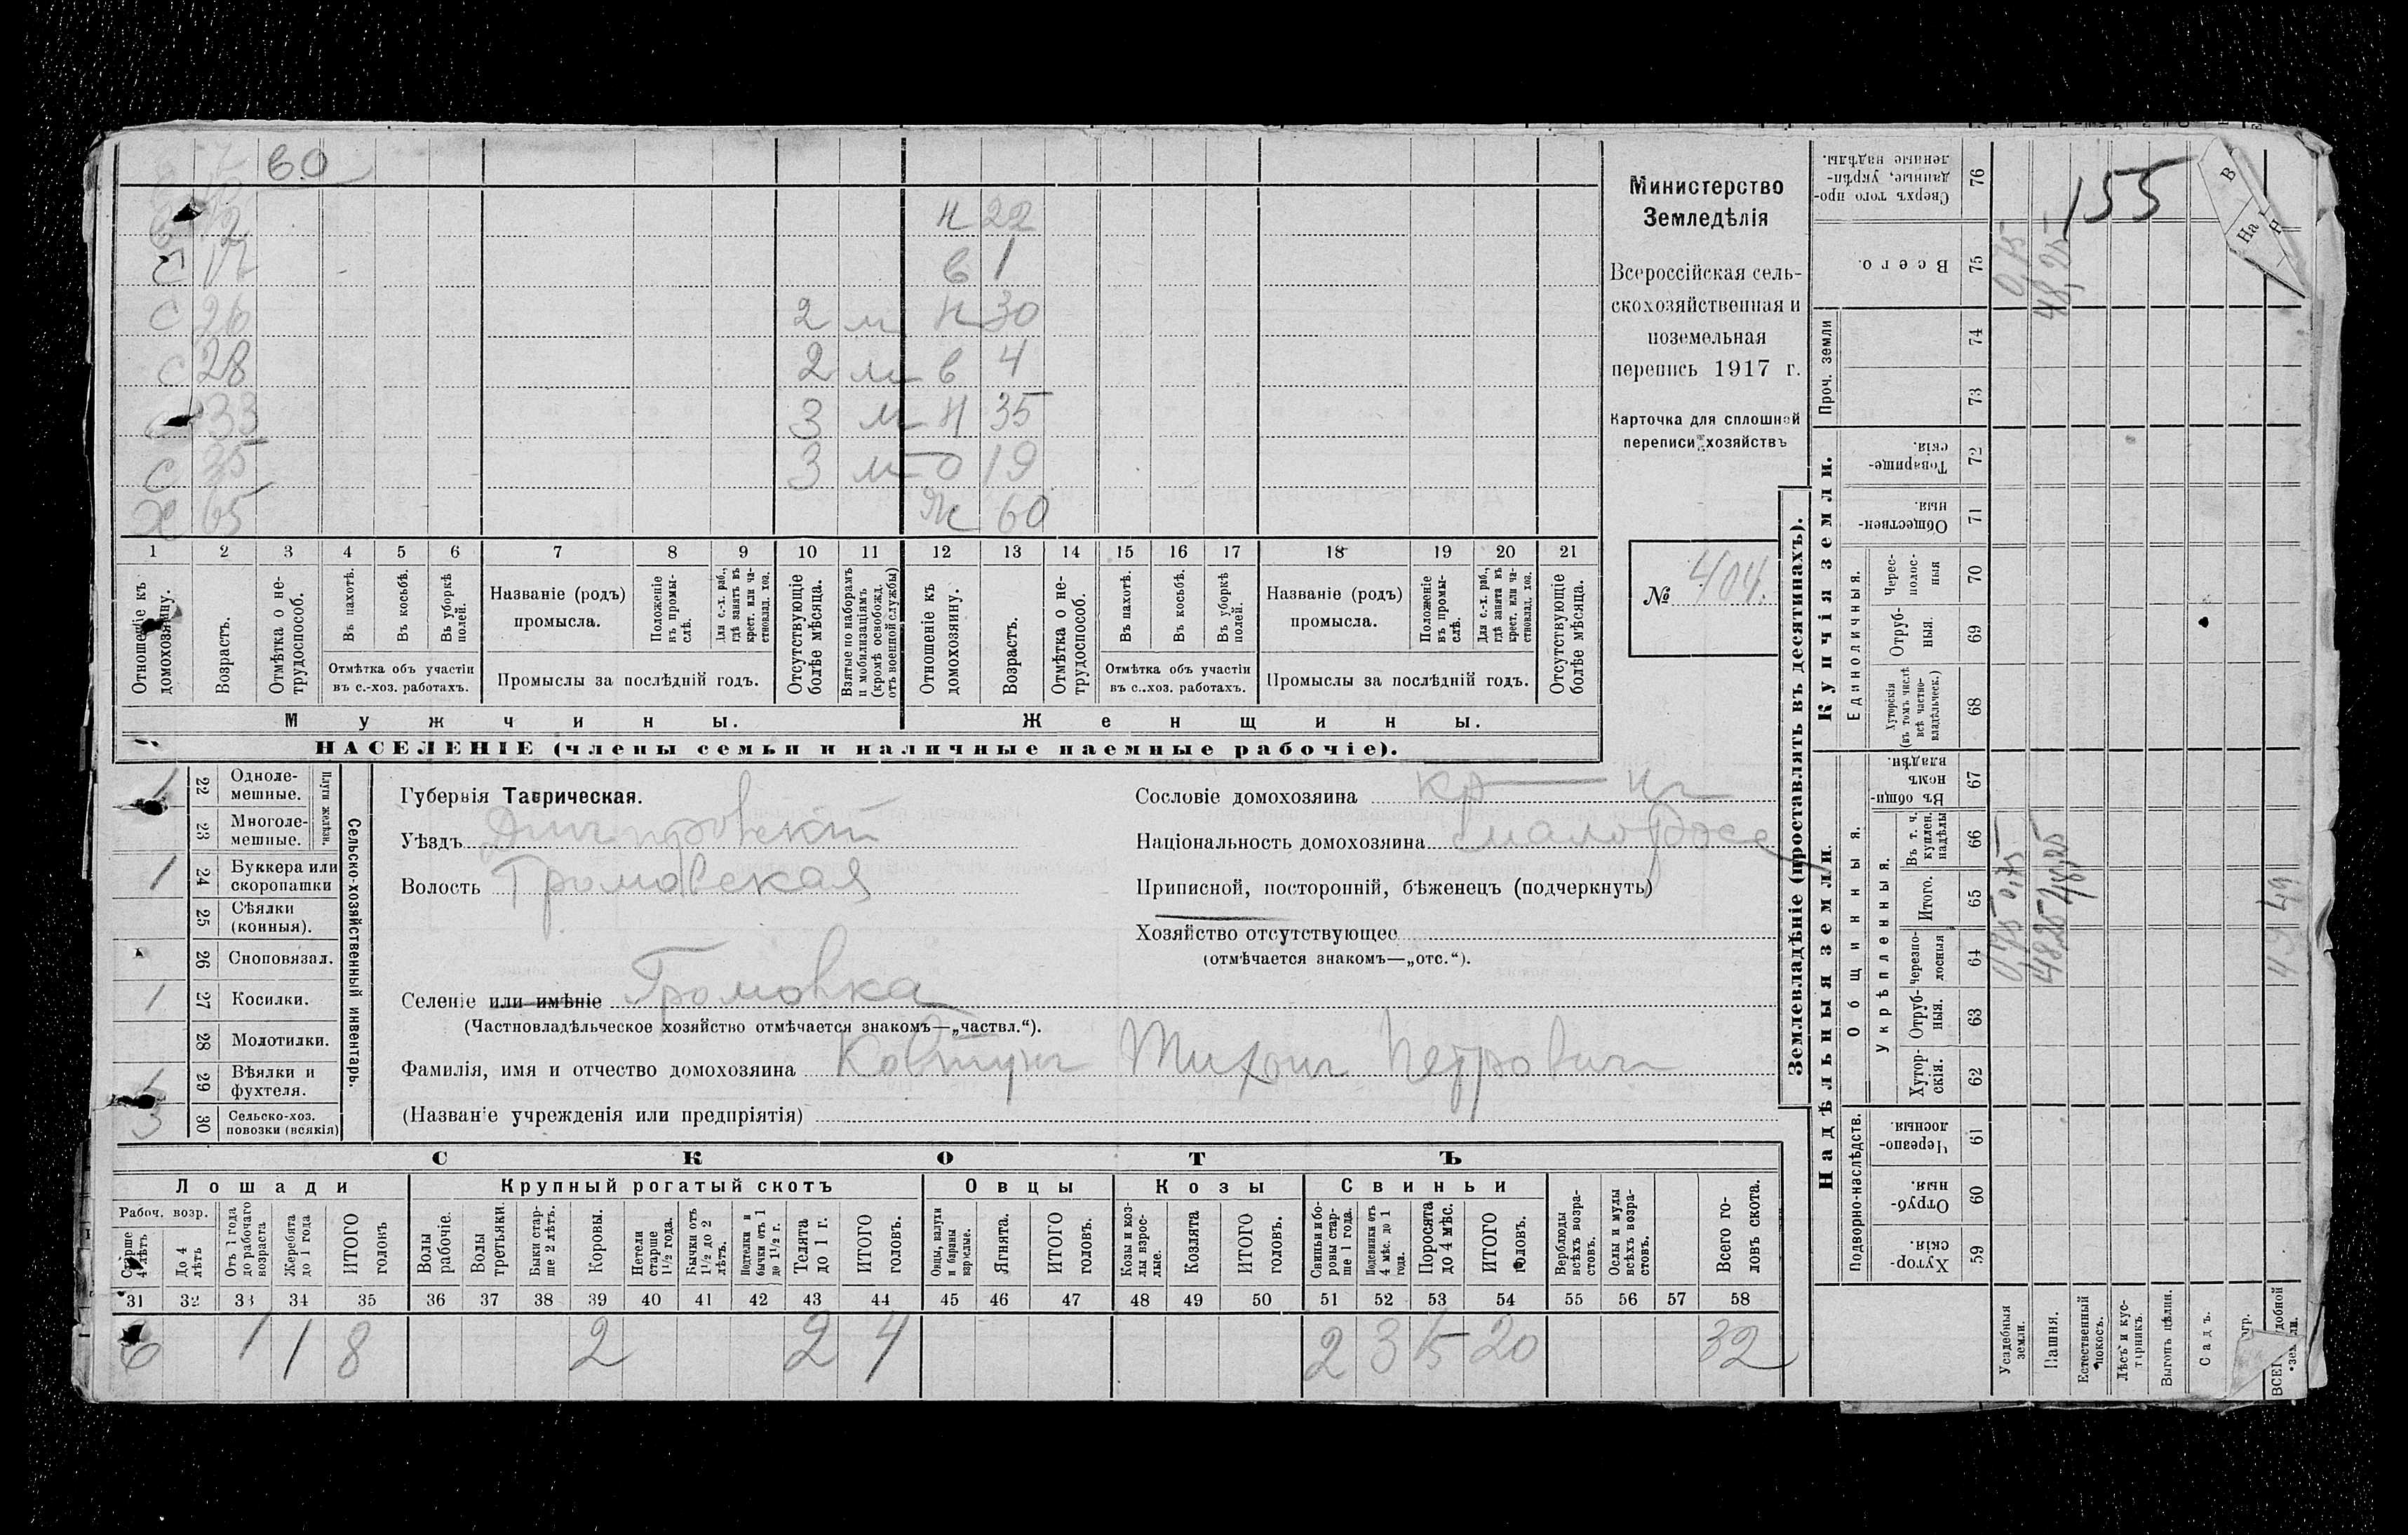 60
в 2 н 22
С 17 в 1
С 26 2 м н 30
С 28 2 м в 4
С 33 3 м н 35
С 35 3 м О 19
Х 65 Ж 60
1 2 3 4 5 6 7 8 9 10 11 12 13 14 15 16 17 18 19 20 21
Отношеніе къ домохозяину.
Возрастъ.
Отмѣтка о нетрудоспособ.
Въ пахотѣ.
Въ косьбѣ.
Въ уборкѣ полей.
Отмѣтка объ участіи
въ с.-хоз. работахъ.
Названіе (родъ)
промысла.
Положеніе въ промыслѣ.
Для с.-х. раб., гдѣ занятъ въ крест. или частновлад. хоз.
Промыслы за послѣдній годъ.
Отсутствующіе болѣе мѣсяца.
Взятые по наборамъ и мобилизаціямъ (кромѣ освобожд. отъ военной службы)
Отношеніе къ домохозяину.
Возрастъ.
Отмѣтка о нетрудоспособ.
Въ пахотѣ.
Въ косьбѣ.
Въ уборкѣ полей.
Отмѣтка объ участіи
въ с..хоз. работахъ.
Названіе (родъ)
промысла.
Положеніе въ промыслѣ.
Для с.-х. раб., гдѣ занята въ крест. или частновлад. хоз.
Промыслы за послѣдній годъ.
Отсутствующіе болѣе мѣсяца.
Мужчины. Женщины.
НАСЕЛЕНІЕ (члены семьи и наличные наемные рабочіе).
Министерство
Земледѣлія
Всероссійская сель-
скохозяйственная и
поземельная
перепись 1917 г.
Карточка для сплошной
переписи хозяйствъ
№ 404.
1 22 Одноле-
мешные.
23 Многоле-
мешные.
Плуги желѣзн.
1 24 Буккера или
скоропашки
25 Сѣялки
(конныя).
26 Сноповязал.
1 27 Косилки.
28 Молотилки.
1 29 Вѣялки и
фухтеля.
3 30 Сельско-хоз.
повозки (всякія)
Сельско-хозяйственный инвентарь.
Губернія Таврическая.
Уѣздъ Днѣпровскій
Волость Громовская
Селеніе или имѣніе Громовка
(Частновладѣльческое хозяйство отмѣчается знакомъ—„частвл.“).
Фамилія, имя и отчество домохозяина Ковтунъ Тихон Петрович
(Названіе учрежденія или предпріятія)
Сословіе домохозяина кр-нъ
Національность домохозяина малоросс
Приписной, посторонній, бѣженецъ (подчеркнуть)
Хозяйство отсутствующее
(отмѣчается знакомъ—„отс.“).
СКОТЪ
Лошади Крупный рогатый скотъ Овцы Козы Свиньи
Рабоч. возр.
Старше 4 лѣтъ
До 4 лѣтъ
Отъ 1 года до рабочаго возраста
Жеребята до 1 года
ИТОГО головъ
Волы рабочіе.
Волы третьяки.
Быки старше 2 лѣтъ.
Коровы.
Нетели старше 1½ года.
Бычки отъ 1½ до 2 лѣтъ.
Подтелки и бычки отъ 1 до 1½ г.
Телята до 1 г.
ИТОГО головъ.
Овцы, валухи и бараны взрослые.
Ягнята.
ИТОГО головъ.
Козы и козлы взрослые.
Козлята
ИТОГО головъ.
Свиньи и боровы старше 1 года.
Подсвинки отъ 4 мѣс. до 1 года.
Поросята до 4 мѣс.
ИТОГО головъ.
Верблюды всѣхъ возрастовъ.
Ослы и мулы всѣхъ возрастовъ.
Всего головъ скота.
31 32 33 34 35 36 37 38 39 40 41 42 43 44 45 46 47 48 49 50 51 52 53 54 55 56 57 58
6 1 1 8 2 2 4 2 3 15 20 32
Землевладѣніе (проставлять въ десятинахъ).
Надѣльныя земли
Купчія земли.
Проч. земли
Подворно-наслѣдств.
Общинныя.
Укрѣпленныя.
Единоличныя.
Хуторскія. 59
Отрубныя. 60
Черезполосныя. 61
Хуторскія. 62
Отрубныя. 63
Черезполосныя 64
Итого. 65
Въ т. ч. куплен. надѣлы 66
Въ общиномъ владѣн. 67
Хуторскія (въ томъ числѣ всѣ частновладѣльческ.) 68
Отрубныя. 69
Чересполосныя 70
Общественныя. 71
Товарищескія. 72
73
74
Всего. 75
Сверхъ того проданные, укрѣпленные надѣлы. 76
Усадебныя земли. 0,75 0,75 0,75
Пашня. 48,25 48,25 48,25
155
Естественный покосъ.
Лѣсъ и кустарникъ.
Выгонъ цѣлин.
Садъ.
49 49